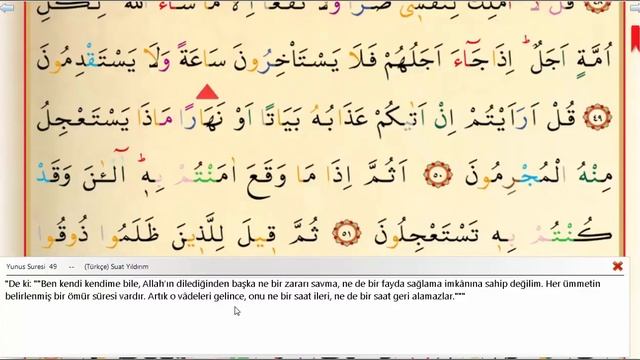 قُلْ لَٓا اَمْلِكُ لِنَفْسٖي ضَرًّا وَلَا نَفْعًا اِلَّا مَا شَٓاءَ اللّٰهُ لِكُلِّ
اُمَّةٍ اَجَلٌ اِذَا جَٓاءَ اَجَلُهُمْ فَلَا يَسْتَاْخِرُونَ سَاعَةً وَلَا يَسْتَقْدِمُونَ
٤٩ قُلْ اَرَاَيْتُمْ اِنْ اَتٰيكُمْ عَذَابُهُ بَيَاتًا اَوْ نَهَارًا مَاذَا يَسْتَعْجِلُ
مِنْهُ الْمُجْرِمُونَ ٥٠ اَثُمَّ اِذَا مَا وَقَعَ اٰمَنْتُمْ بِهٖ اٰلْـٰٔنَ وَقَدْ
كُنْتُمْ بِهٖ تَسْتَعْجِلُونَ ٥١ ثُمَّ قٖيلَ لِلَّذٖينَ ظَلَمُوا ذُوقُوا
Yunus Suresi 49 -- (Türkçe) Suat Yıldırım
"De ki: ""Ben kendi kendime bile, Allah'ın dilediğinden başka ne bir zararı savma, ne de bir fayda sağlama imkânına sahip değilim. Her ümmetin
belirlenmiş bir ömür süresi vardır. Artık o vâdeleri gelince, onu ne bir saat ileri, ne de bir saat geri alamazlar."""